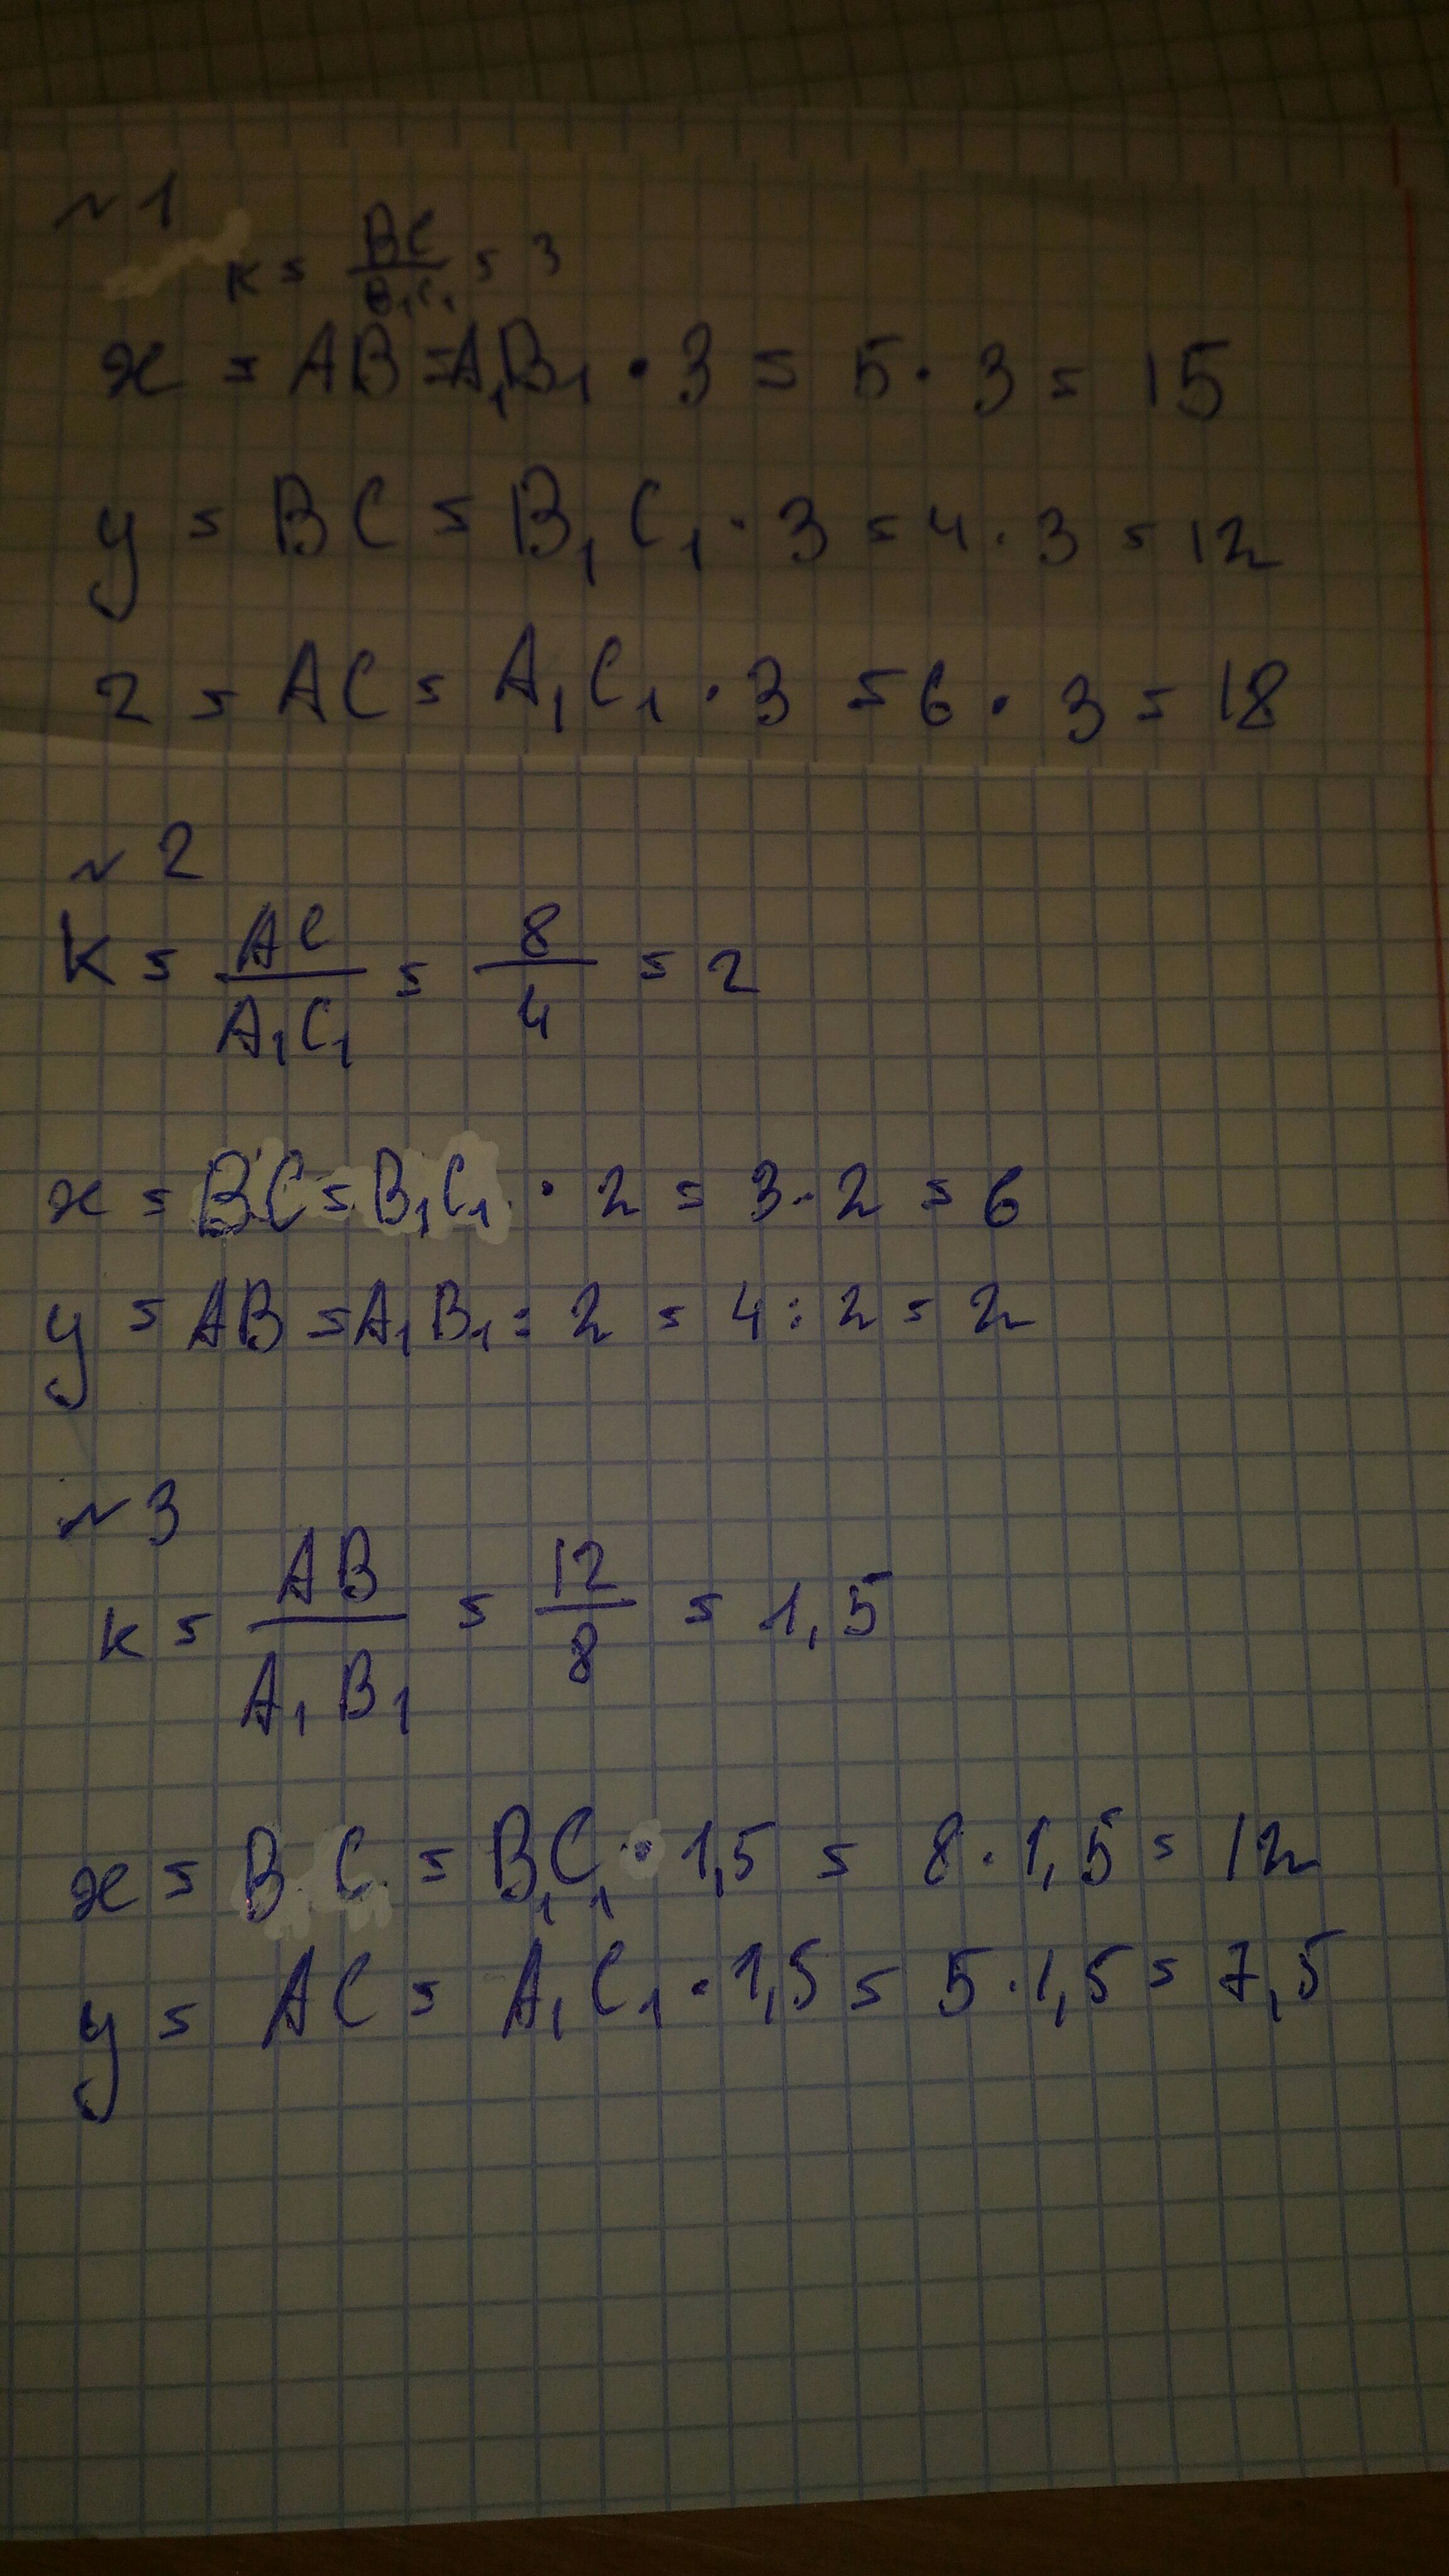 №1
k = BC/B₁C₁ = 3
x = AB = A₁B₁ · 3 = 5 · 3 = 15
y = BC = B₁C₁ · 3 = 4 · 3 = 12
z = AC = A₁C₁ · 3 = 6 · 3 = 18
№2
k = AC/A₁C₁ = 8/4 = 2
x = BC = B₁C₁ · 2 = 3 · 2 = 6
y = AB = A₁B₁ : 2 = 4 : 2 = 2
№3
k = AB/A₁B₁ = 12/8 = 1,5
x = BC = B₁C₁ · 1,5 = 8 · 1,5 = 12
y = AC = A₁C₁ · 1,5 = 5 · 1,5 = 7,5